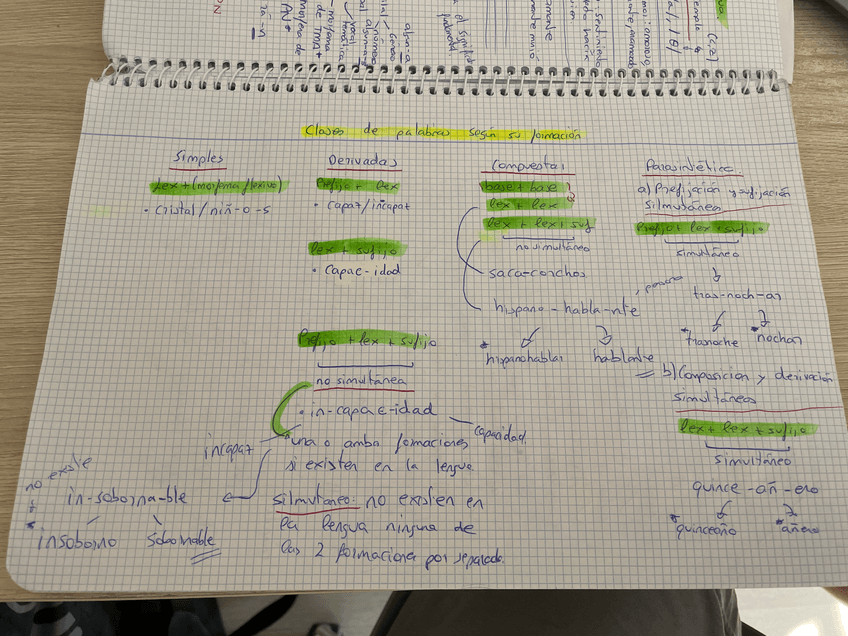 Clases de palabras según su formación
Simples
Lex + (morfema flexivo)
• cristal / niñ-o-s
Derivadas
Prefijo + lex
• Capaz / incapaz
lex + sufijo
• Capac-idad
Prefijo + lex + sufijo
no simultánea
• in-capac-idad
incapaz
capacidad
*una o amba formaciones
si existen en la lengua
no existe
in-soborna-ble
*insoborno sobornable
Silmutáneo: no existen en
la lengua ninguna de
las 2 formaciones por separado.
Compuestas
base + base
lex + lex
lex + lex + suf
no simultáneo
saca-corchos
hispano-habla-nte
*hispanohablar hablante
Parasintética
a) Prefijación y sufijación
silmutánea
Prefijo + lex + sufijo
simultáneo
tras-noch-ar
*trasnoche *nochar
b) Composición y derivación
simultáneas
lex + lex + sufijo
simultáneo
quince-añ-ero
*quinceaño *añero